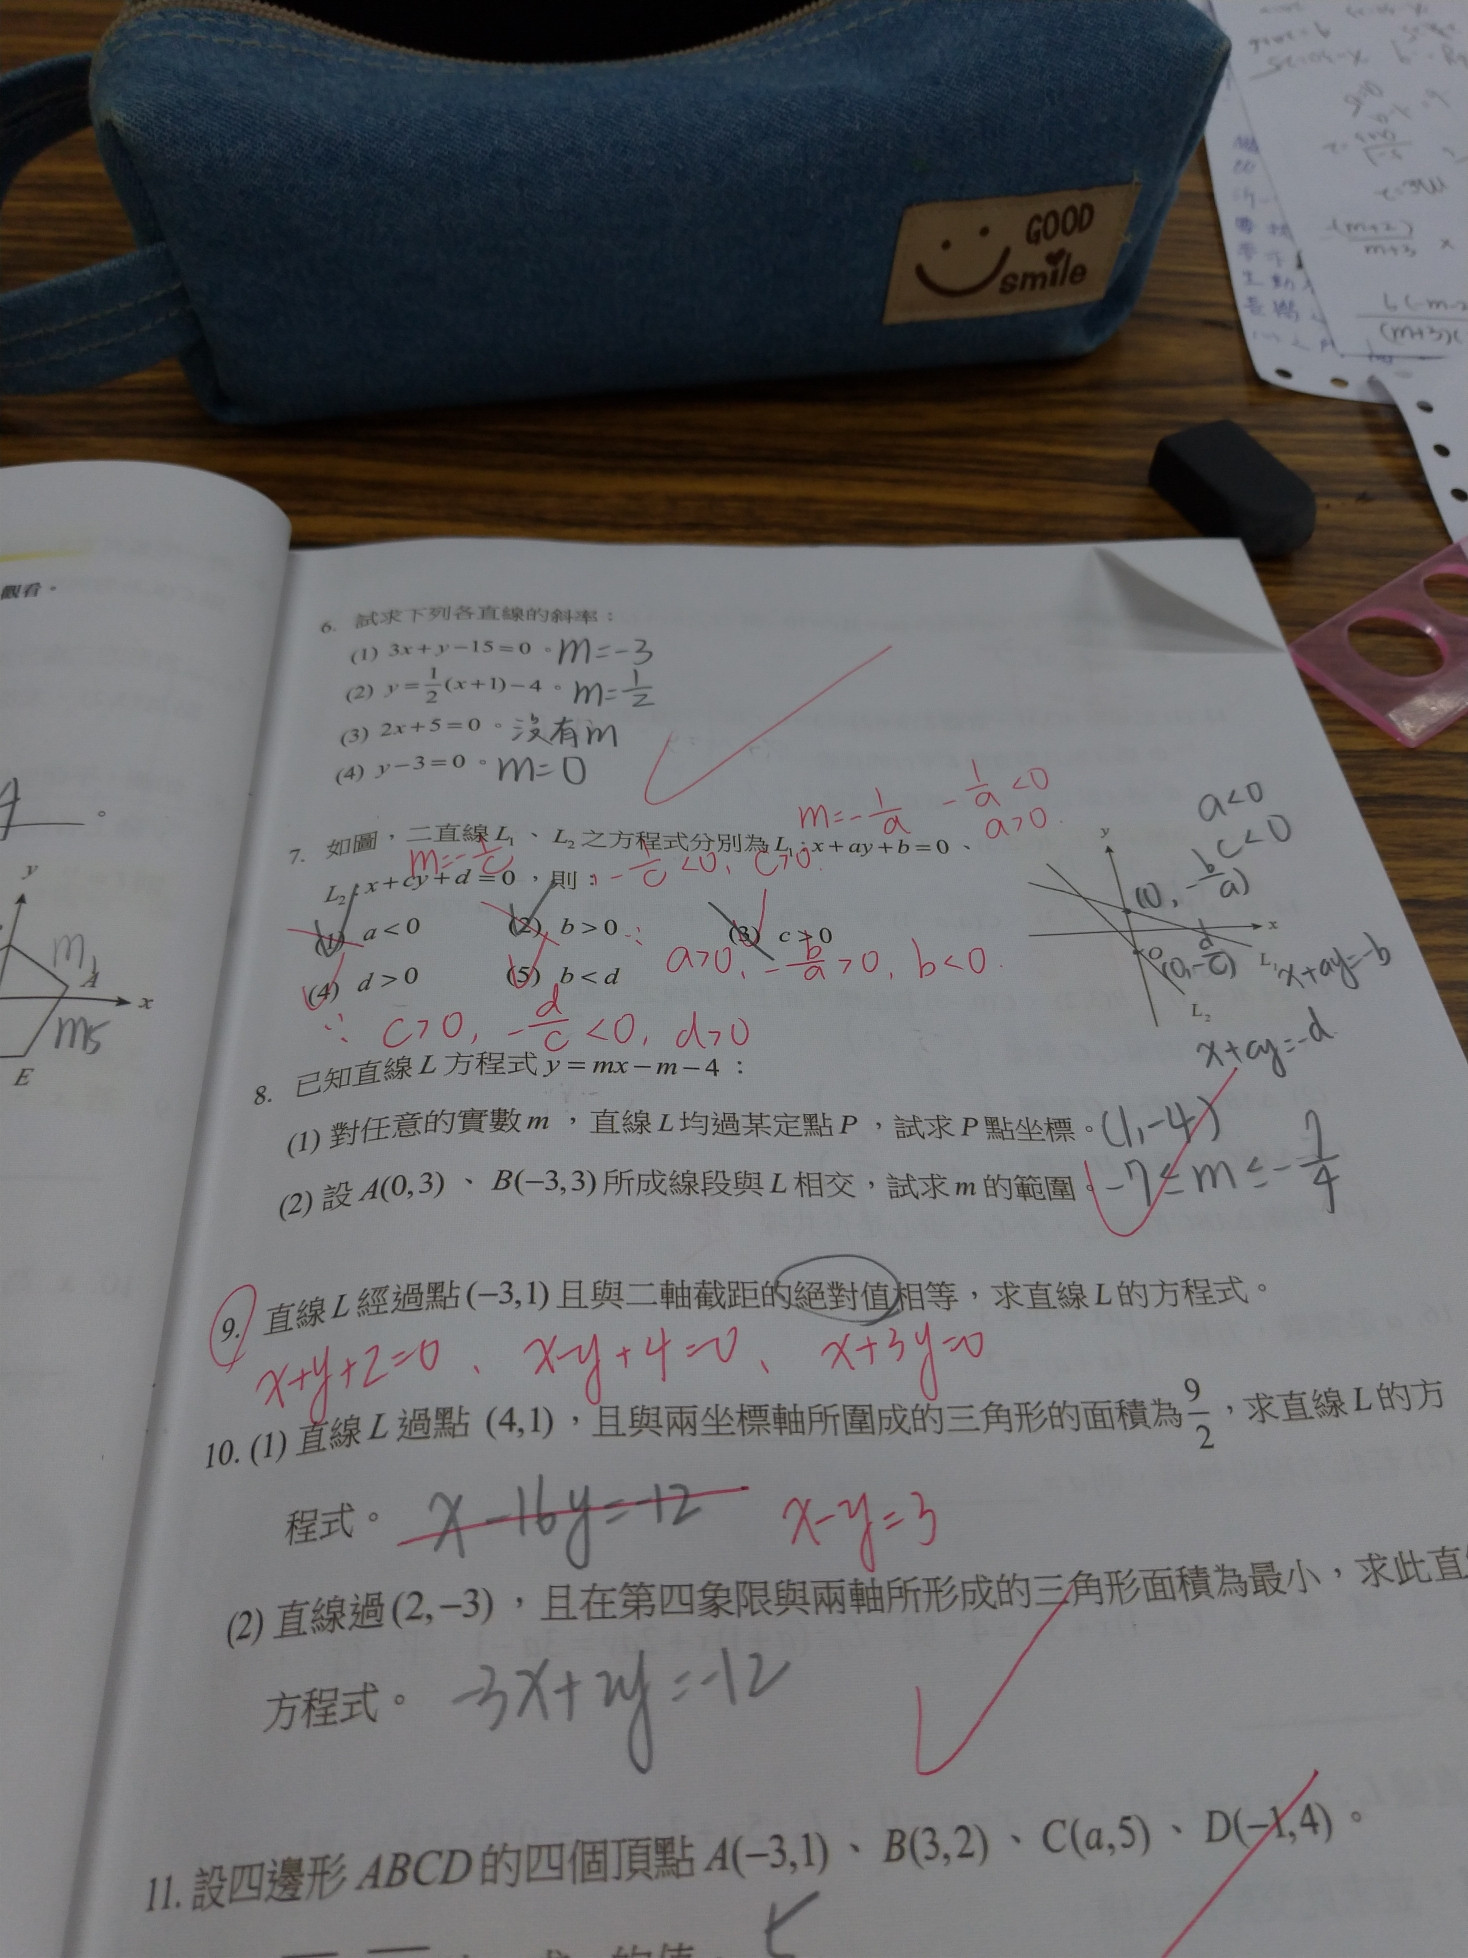 GOOD
smile
觀看。
6. 試求下列各直線的斜率：
(1) 3x+y−15=0。m=-3
(2) y=1/2(x+1)−4。m=1/2
(3) 2x+5=0。沒有m
(4) y−3=0。m=0
m=-1/a -1/a<0
a>0
a<0
c<0
7. 如圖，二直線L₁、L₂之方程式分別為L₁：x+ay+b=0、
m=-1/c -1/c<0, c>0
L₂：x+cy+d=0，則：
(1) a<0 (2) b>0 (3) c>0
∵ a>0, -b/a>0, b<0
(4) d>0 (5) b<d
∵ c>0, -d/c<0, d>0
y
x
O
L₁
L₂
(0, -b/a)
(0, -d/c)
x+ay=-b
x+cy=-d
y
x
A
E
m₁
m5
8. 已知直線L方程式y=mx−m−4：
(1) 對任意的實數m，直線L均過某定點P，試求P點坐標。(1,-4)
(2) 設A(0,3)、B(−3,3)所成線段與L相交，試求m的範圍。-7≤m≤-7/4
9. 直線L經過點(−3,1)且與二軸截距的絕對值相等，求直線L的方程式。
x+y+2=0、x-y+4=0、x+3y=0
10. (1) 直線L過點(4,1)，且與兩坐標軸所圍成的三角形的面積為9/2，求直線L的方
程式。x-16y=-12 x-y=3
(2) 直線過(2,−3)，且在第四象限與兩軸所形成的三角形面積為最小，求此直
方程式。-3x+2y=-12
11. 設四邊形ABCD的四個頂點A(−3,1)、B(3,2)、C(a,5)、D(−1,4)。